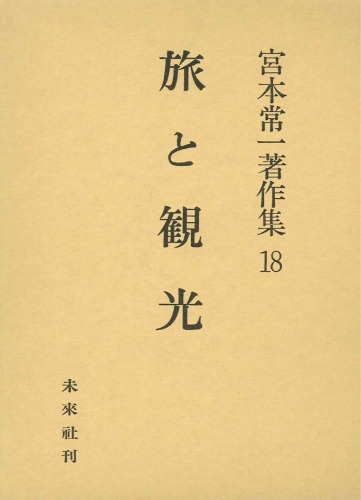 宮本常一著作集18
旅と観光
未來社刊